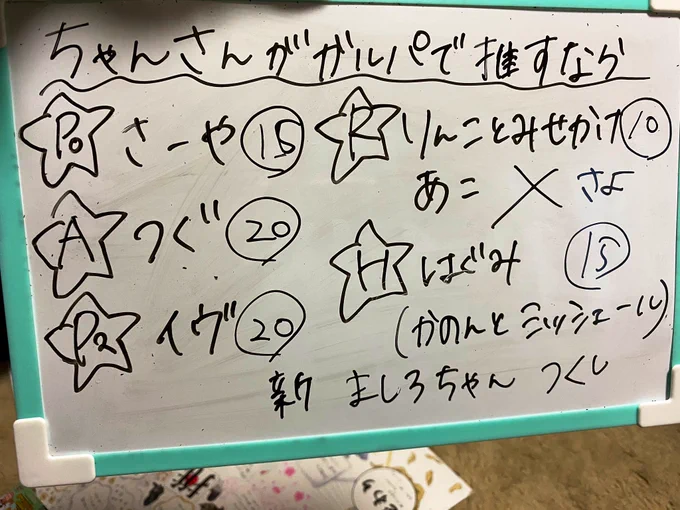 ちゃんさんがガルパで推すなら
Po さーや 15
A つぐ 20
Pa イヴ 20
R りんことみせかけ 10
あこ × さよ
H はぐみ 15
(かのんとミッシェール)
新 ましろちゃん つくし